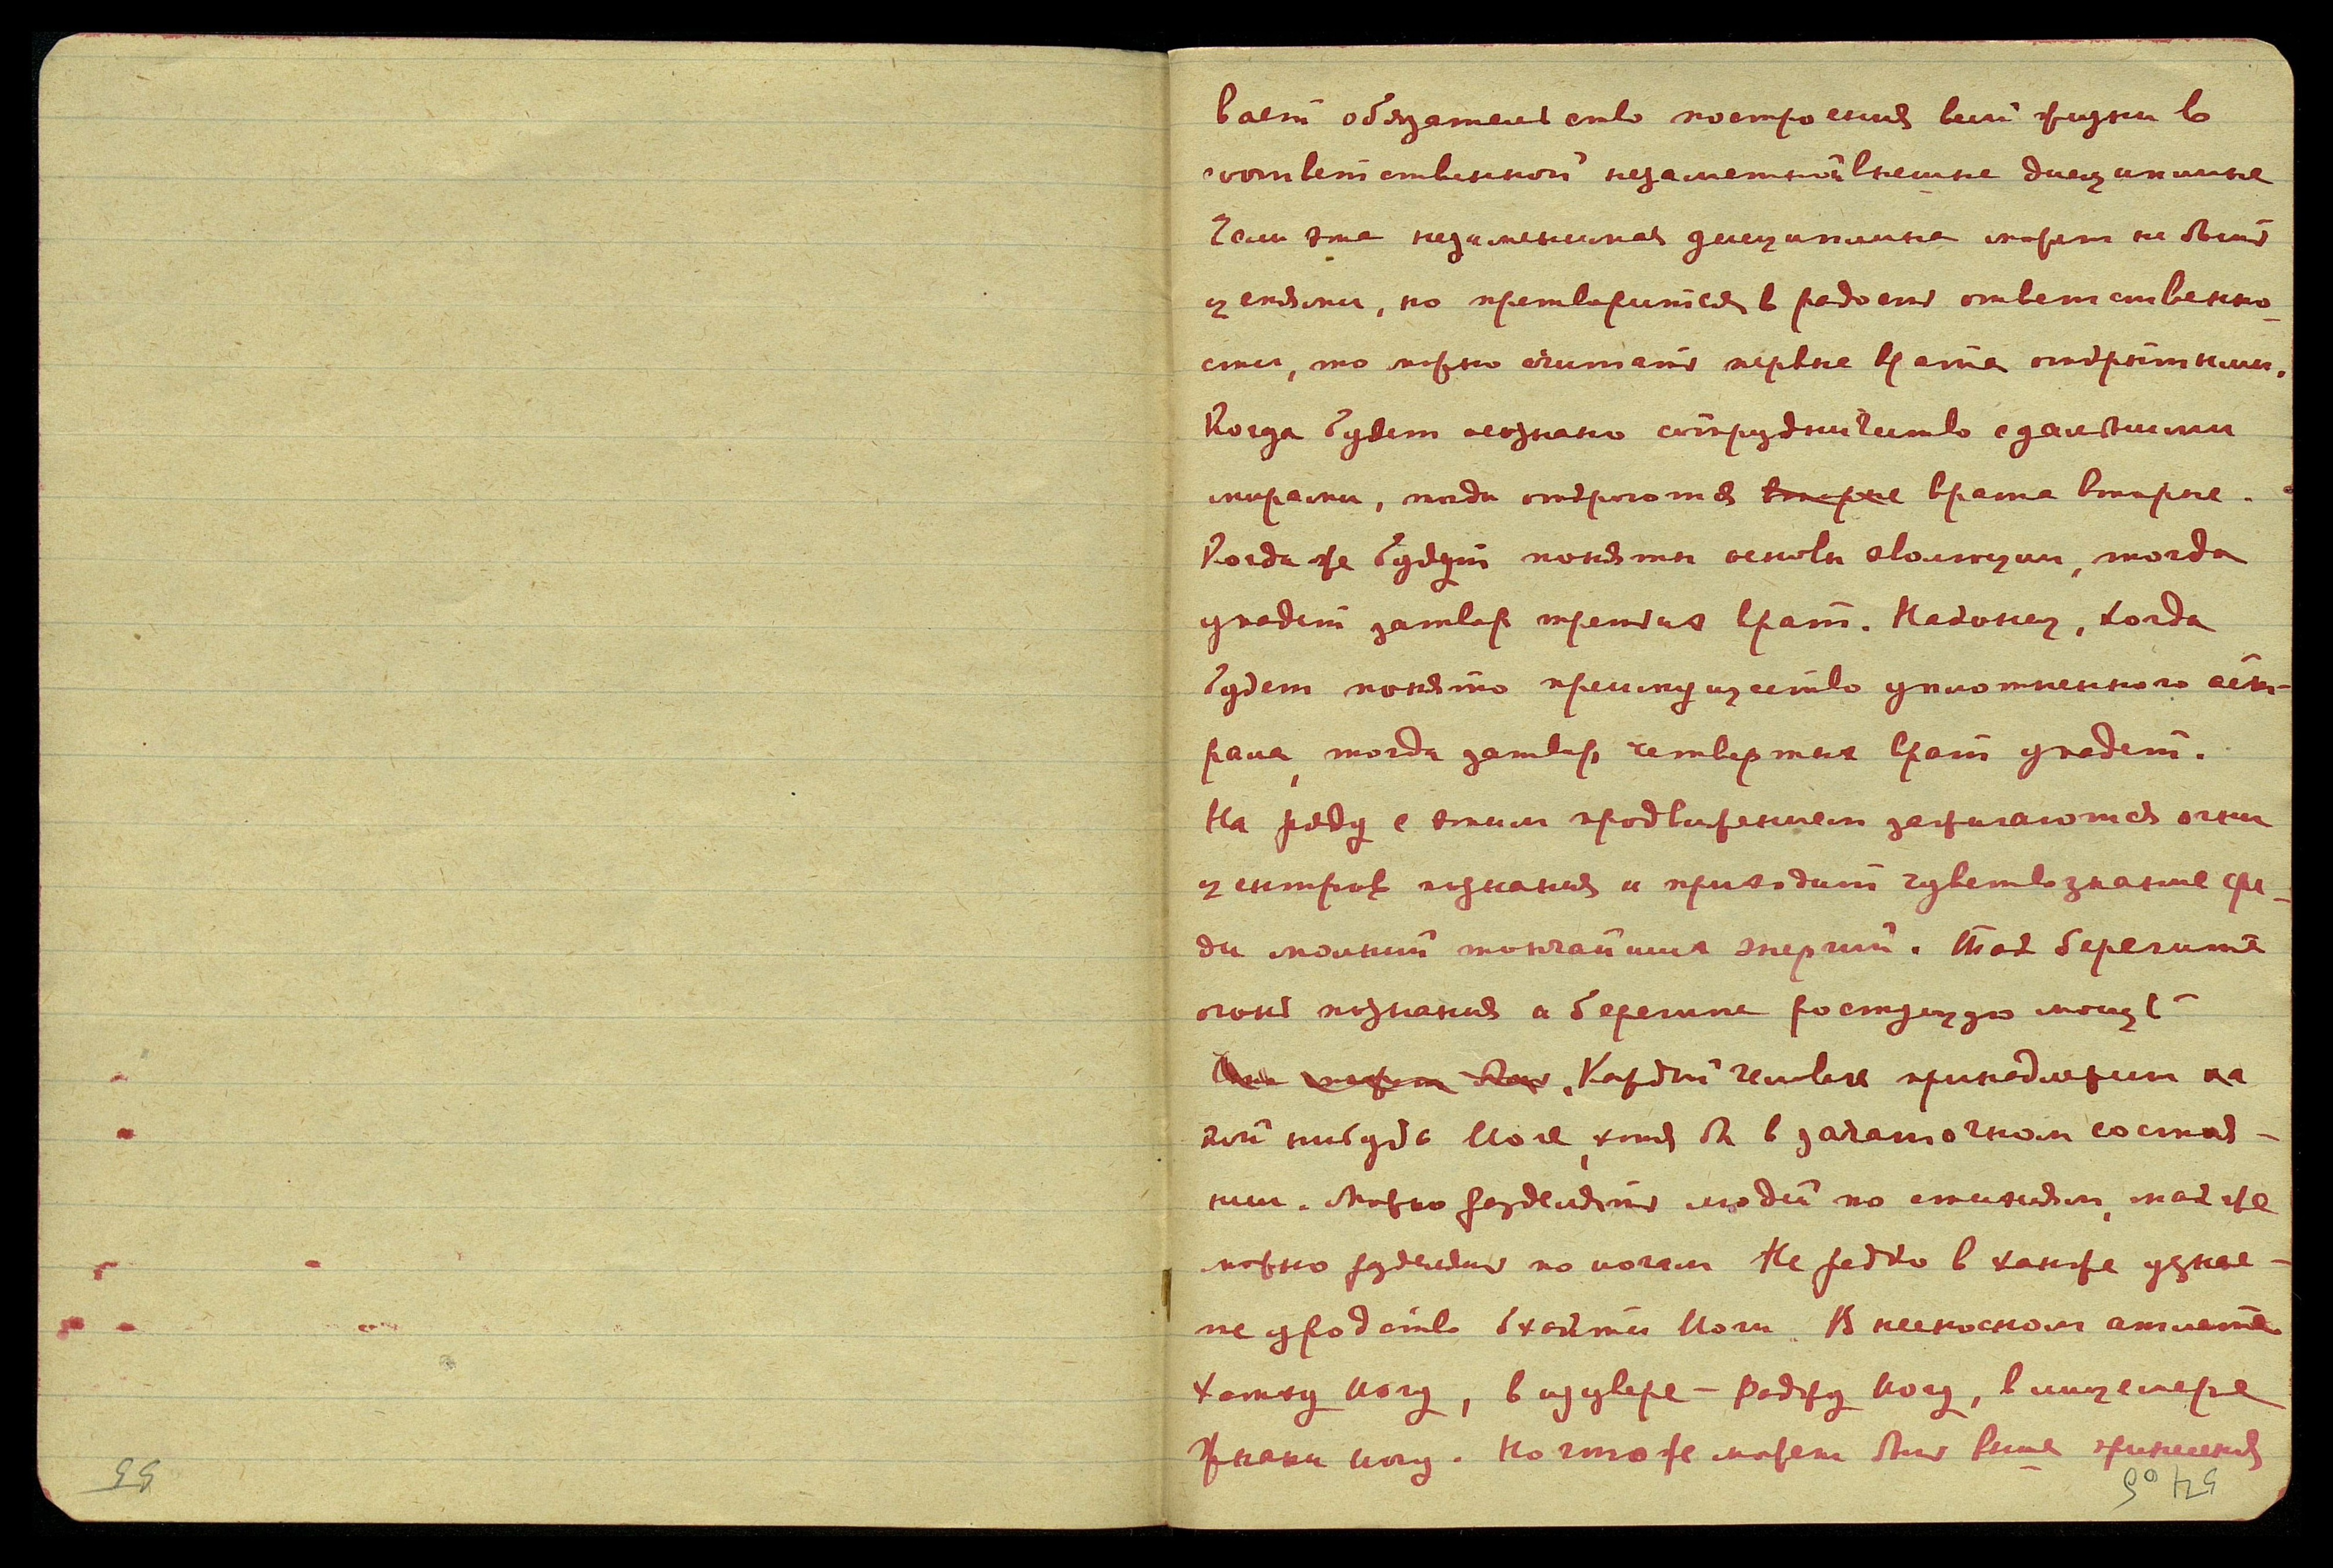 вает обязательство построения всей жизни в
соответственной незаметной внешне дисциплине
Если эта незаменимая дисциплина может не быть
цепями, но претворится в радость ответственно-
сти, то можно считать первые врата открытыми.
Когда будет осознано сотрудничество с дальними
мирами, тогда откроются вторые врата вторые.
Когда же будут поняты основы эволюции, тогда
упадет затвор третьих врат. Наконец, когда
будет понято преимущество уплотненного аст-
рала, тогда затвор четвертых врат упадет.
На ряду с этим продвижением зажигаются огни
центров познания и приходит чувствознание сре-
ди молний тончайших энергий. Так берегите
огонь познания и берегите ростущую мощь
Она может быть. Каждый человек принадлежит ка
кой нибудь Йоге, хотя бы в зачаточном состоя-
нии. Можно разделять людей по стихиям, так же
можно разделять по йогам Не редко в ханже узнае-
те уродство Бхакти Йоги. В несносном атлете
Хатху Йогу, в изувере – Раджу Йогу, в лицемере
Жнани Йогу. Но что же может быть выше приближения
55
54 об